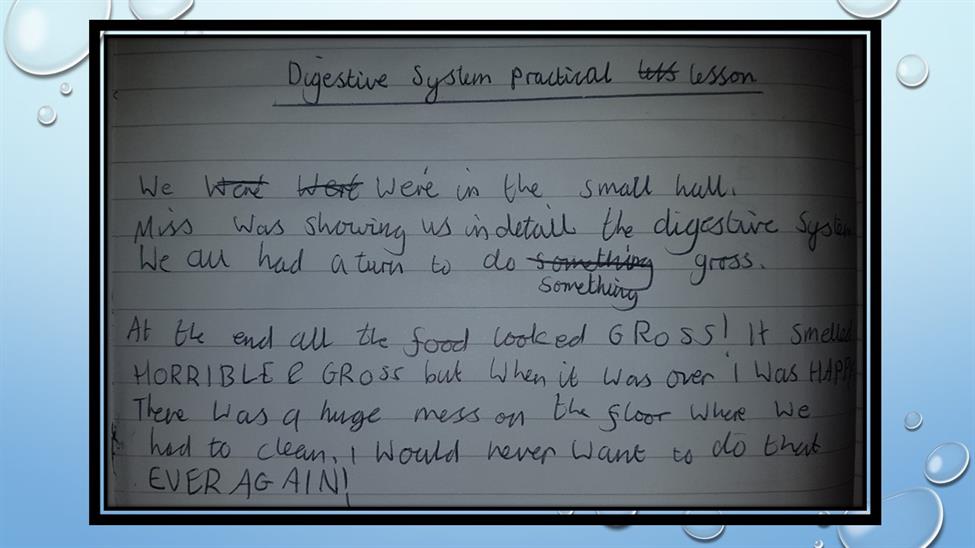 Digestive System practical ~~les~~ lesson
We ~~Went~~ ~~Went~~ Were in the small hall.
Miss Was showing us in detail the digestive System
We all had a turn to do ~~something~~ gross.
something
At the end all the food looked GRoSS! It smelled
HORRIBLE & GRoss but When it was over i Was HAPPY
There Was a huge mess on the floor where we
had to clean, i would never want to do that
EVER AGAIN!